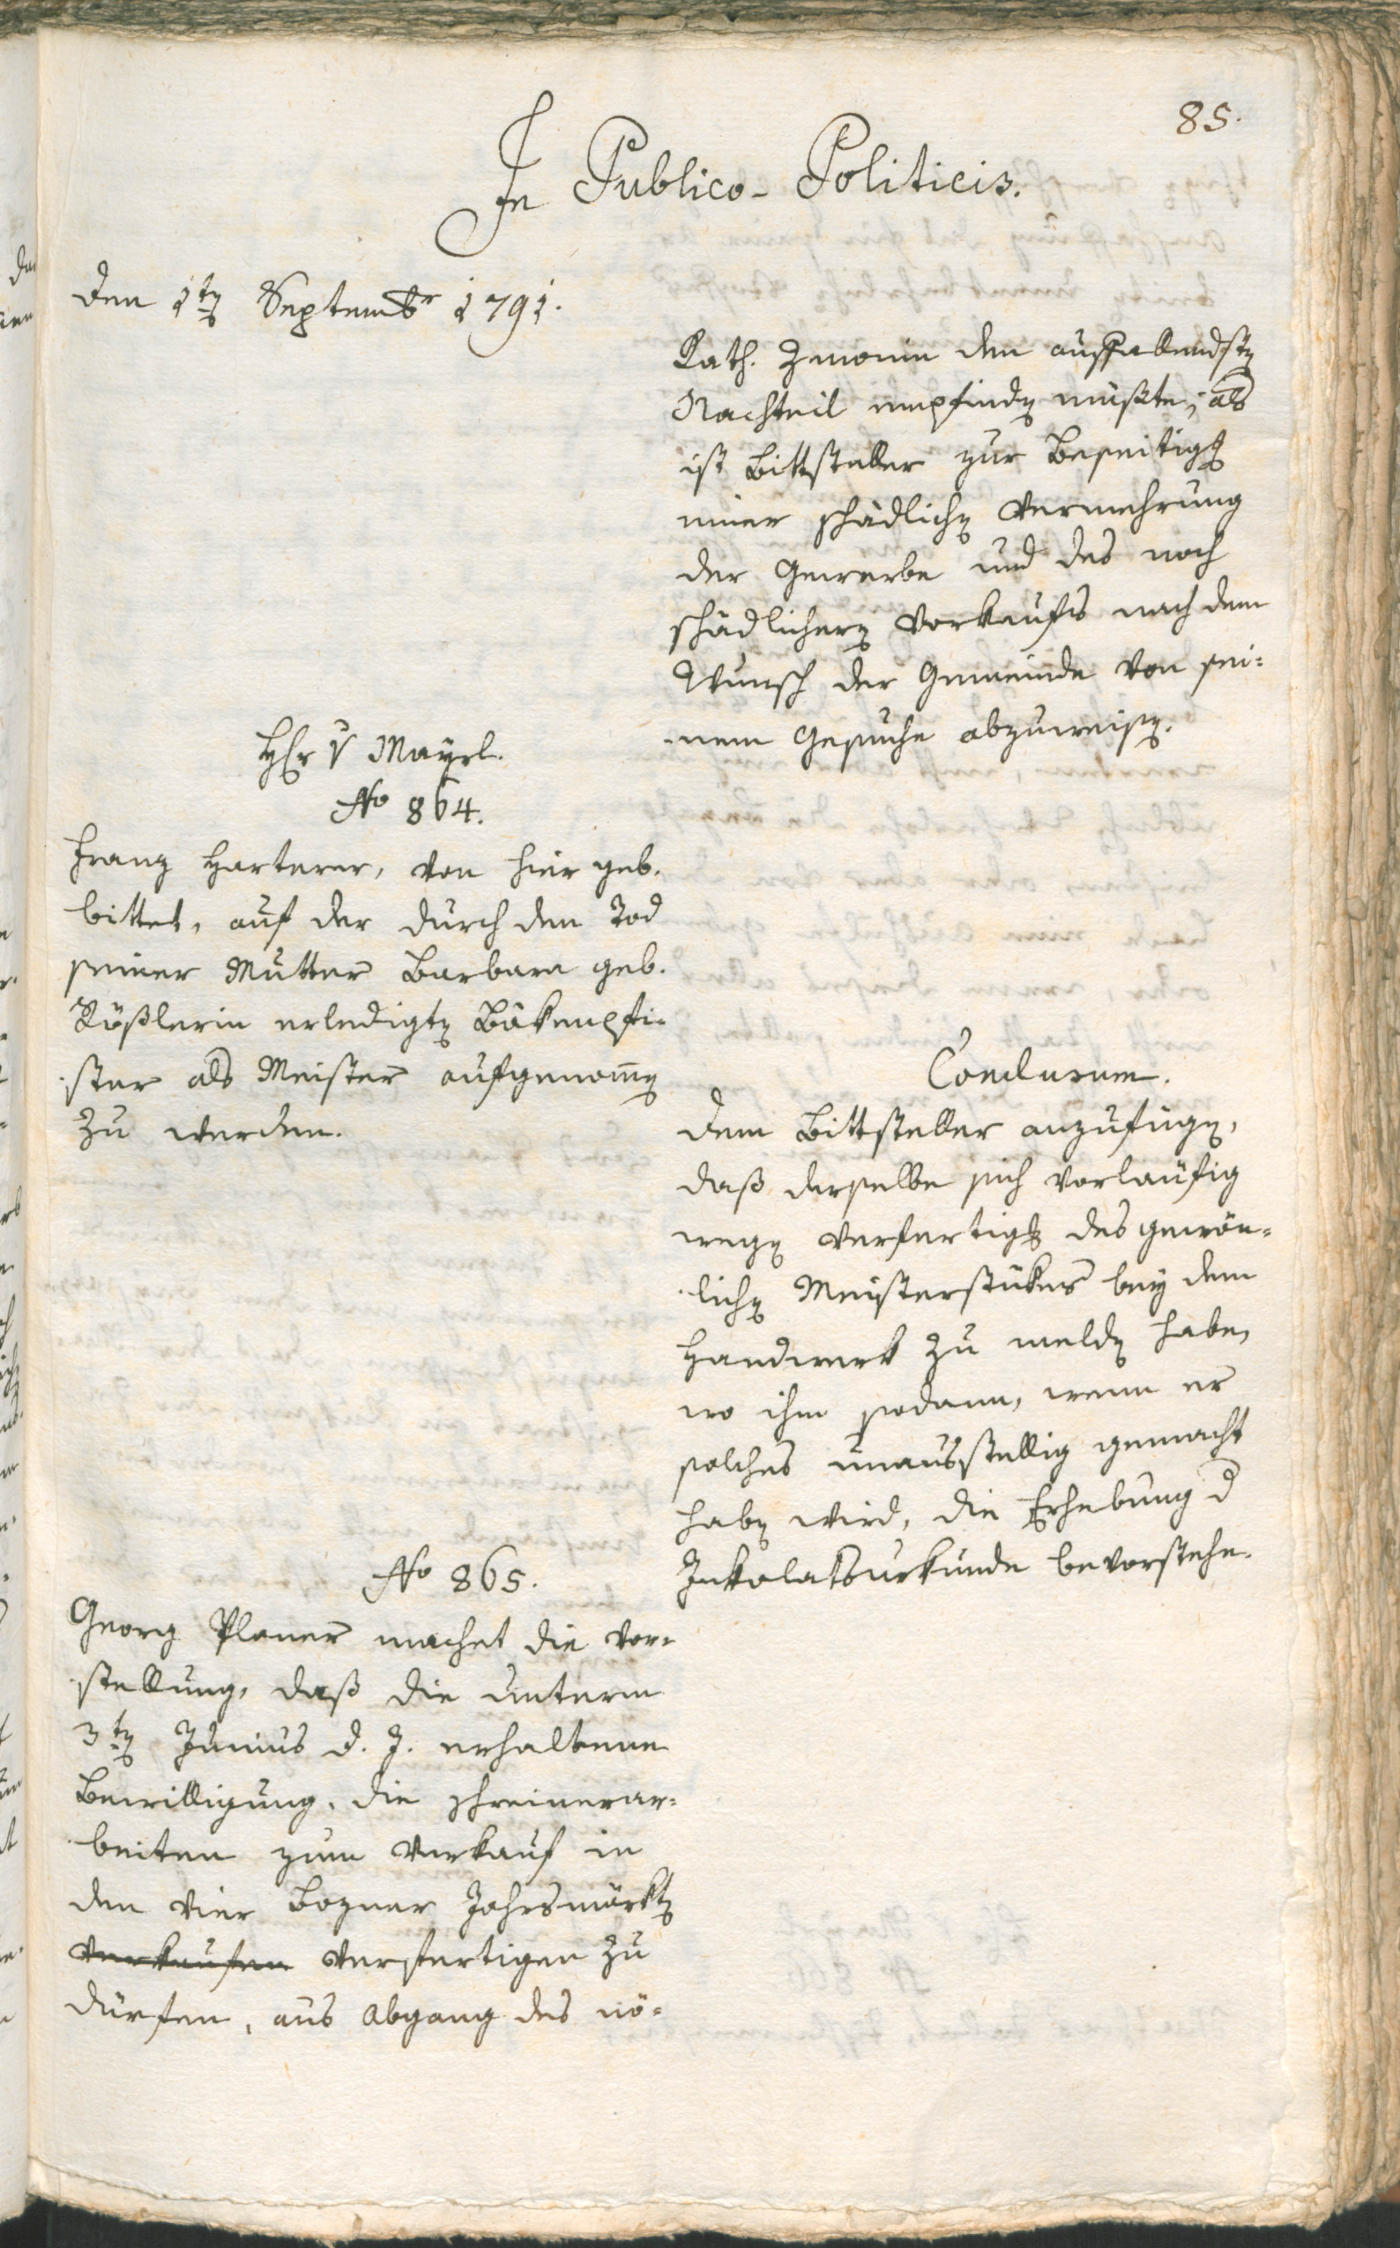 85.
In Publico-Politicis.
den 1ten Septembr 1791.
Kath. Zmonin den auffallendsten
Nachteil empfinden müßte, als
ist Bittsteller zur Beseitigg
einer schädlichen Vermehrung
der Gewerbe und des noch
schädlichern Vorkaufs nach dem
Wunsch der Gemeinde von sei-
nem Gesuche abzuweisen.
Hr v Mayrl.
No 864.
Franz Harterer, von hier geb.
bittet, auf der durch den Tod
seiner Mutter Barbara geb.
Rößlerin erledigten Bäkenpfi-
ster als Meister aufgenommen
zu werden.
Conclusum.
dem Bittsteller anzufügen,
daß derselbe sich vorläufig
wegen Verfertigg des gewön-
lichen Meisterstükes bey dem
Handwerk zu melden habe,
wo ihm sodann, wenn er
solches unausstellig gemacht
haben wird, die Erhebung d
Inkolatsurkunde bevorstehe.
No 865.
Georg Planer machet die Vor-
stellung, daß die unterm
3ten Junius d. J. erhaltene
Bewilligung, die Schreinerar-
beiten zum Verkauf in
den vier Bozner Jahrsmärkten
verkaufen verfertigen zu
dürfen, aus Abgang des nö-